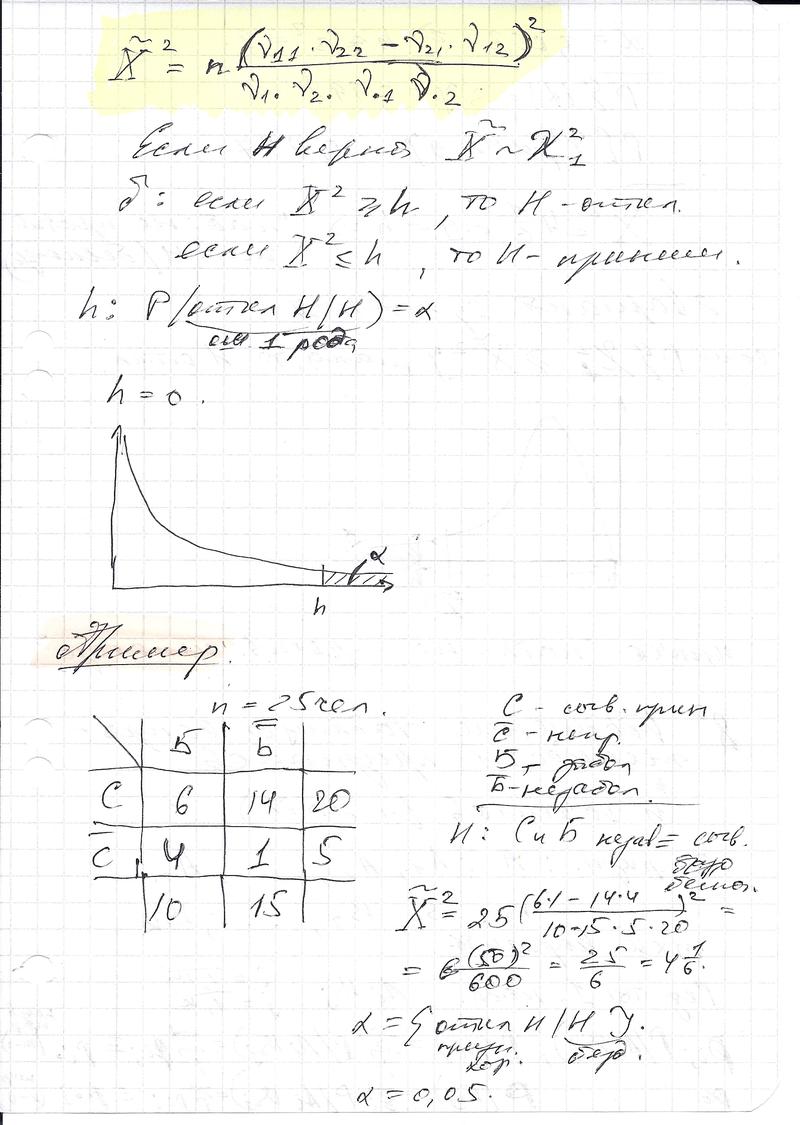 X̃² = n (ν₁₁·ν₂₂ − ν₂₁·ν₁₂)² / ν₁. ν₂. ν.₁ ν.₂
Если H верна X̃ ~ χ²₁
δ: если X² ≥ h, то H - откл.
если X² ≤ h, то H - приним.
h: P(откл H/H) = α
ош 1 рода
h = 0.
α
h
Пример.
n = 25 чел.
Б Б̅
С 6 14 20
С̅ 4 1 5
10 15
С - сыв. прин
С̅ - непр.
Б - забол
Б̅ - незабол.
H: С и Б незав = сыв.
X̃² = 25 (6·1 − 14·4)² / 10·15·5·20 =
= (50)² / 600 = 25/6 = 4 1/6.
α = { откл H / H }.
α = 0,05.